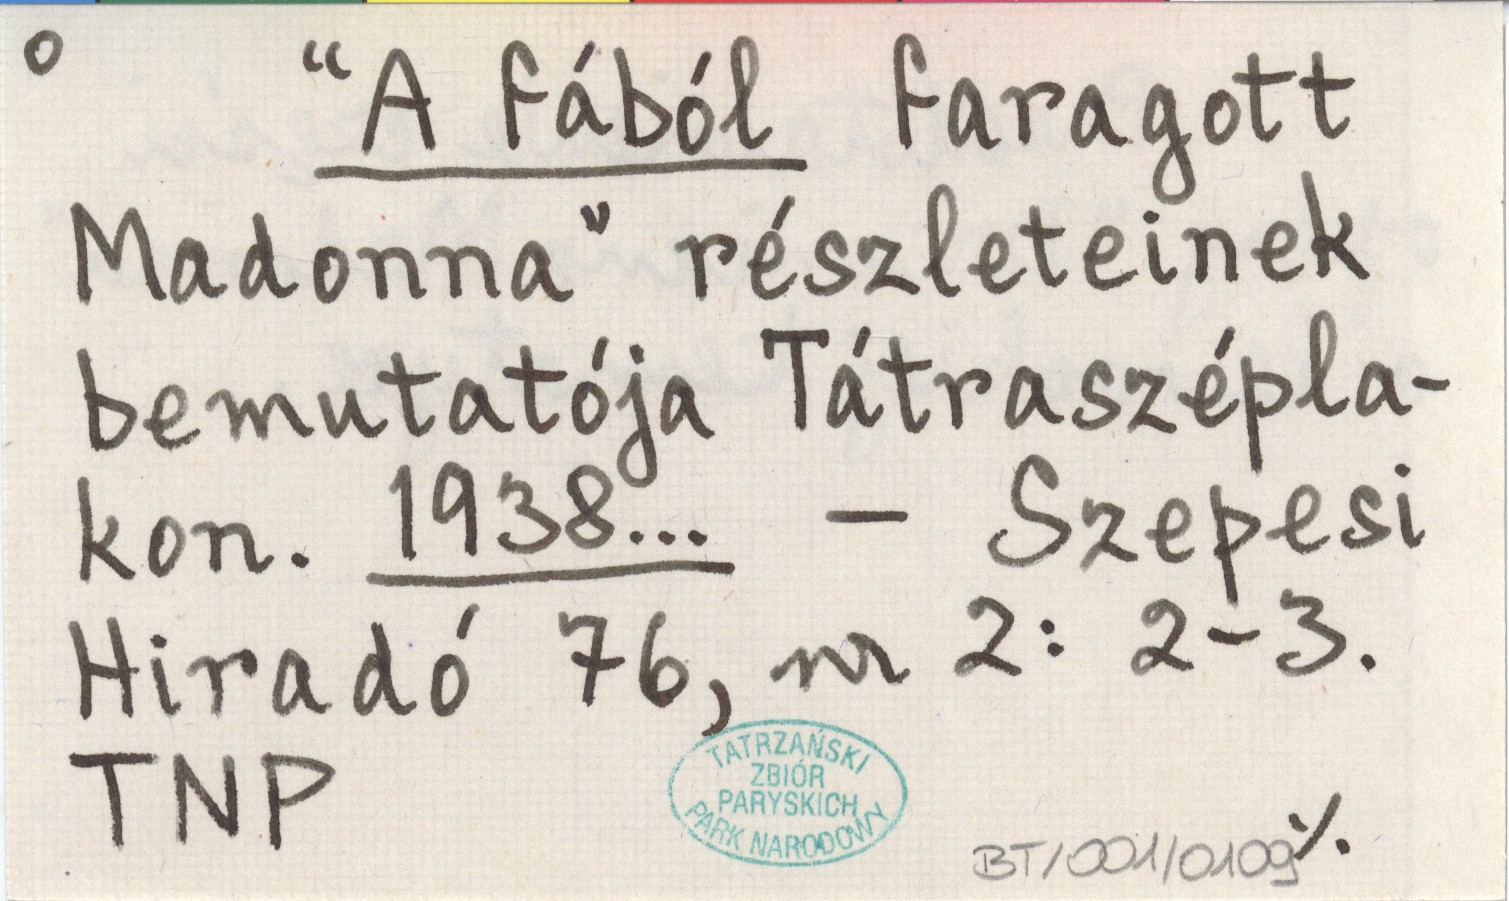 o "A fából faragott
Madonna" részleteinek
bemutatója Tátraszépla-
kon. 1938... — Szepesi
Hiradó 76, nr 2: 2-3.
TNP
TATRZAŃSKI
ZBIÓR
PARYSKICH
PARK NARODOWY
BT/001/0109
./.